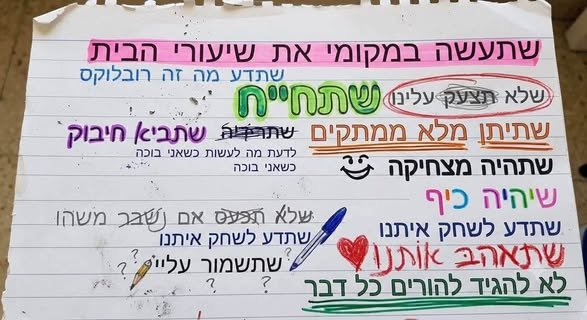 שתעשה במקומי את שיעורי הבית
שתדע מה זה רובלוקס
שלא תצעק עלינו
שתחייח
שתיתן מלא ממתקים
שתביא חיבוק
לדעת מה לעשות כשאני בוכה
כשאני בוכה
שתהיה מצחיקה
שיהיה כיף
שלא תכעס אם נשבר משהו
שתדע לשחק איתנו
שתדע לשחק איתנו
שתאהב אותנו
? ? שתשמור עליי ?
? ? ?
לא להגיד להורים כל דבר